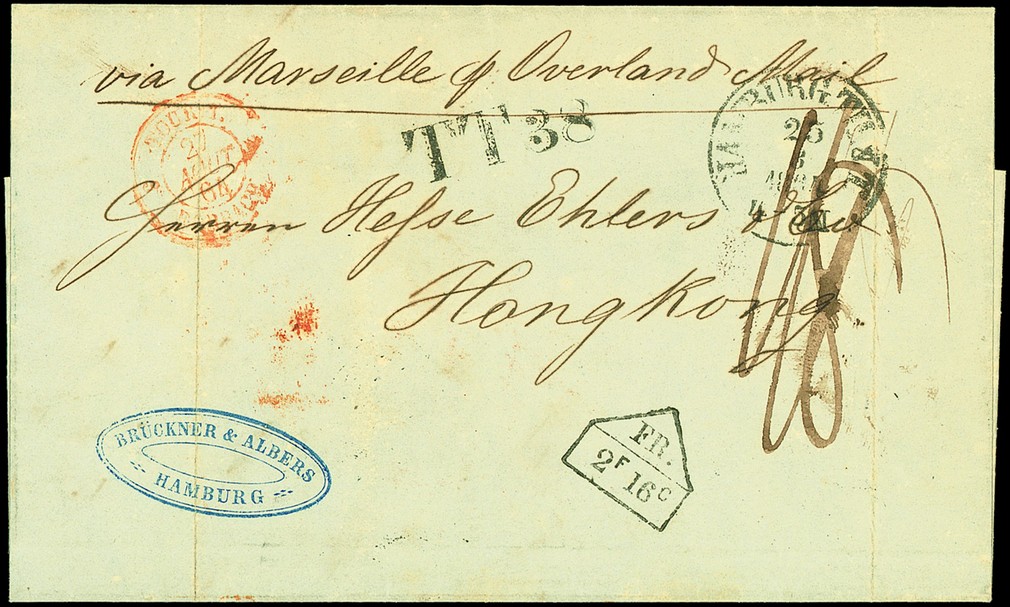 via Marseille p Overland Mail
TT 38
HAMBURG TH.&T.
25
27
AOUT
Herren Hesse Ehlers & Co
Hongkong
BRÜCKNER & ALBERS
HAMBURG
FR.
2F 16C